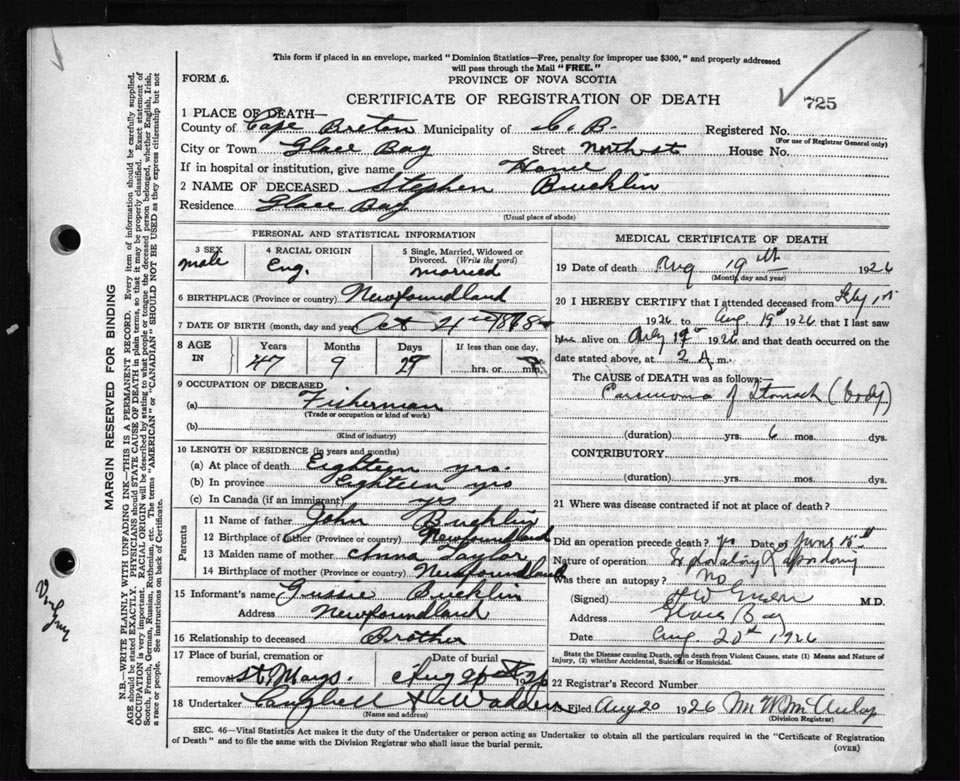 This form if placed in an envelope, marked "Dominion Statistics—Free, penalty for improper use $300," and properly addressed
will pass through the Mail "FREE."
FORM 6.
PROVINCE OF NOVA SCOTIA
CERTIFICATE OF REGISTRATION OF DEATH
725
1 PLACE OF DEATH—
County of Cape Breton Municipality of C. B. Registered No.
(For use of Registrar General only)
City or Town Glace Bay Street North st House No.
If in hospital or institution, give name Home
2 NAME OF DECEASED Stephen Bucklin
Residence Glace Bay
(Usual place of abode)
PERSONAL AND STATISTICAL INFORMATION
3 SEX
male
4 RACIAL ORIGIN
Eng.
5 Single, Married, Widowed or
Divorced. (Write the word)
married
6 BIRTHPLACE (Province or country) Newfoundland
7 DATE OF BIRTH (month, day and year) Oct 21st 1878
8 AGE IN
Years Months Days If less than one day,
47 9 29 hrs. or min.
9 OCCUPATION OF DECEASED
(a) Fisherman
(Trade or occupation or kind of work)
(b)
(Kind of industry)
10 LENGTH OF RESIDENCE (in years and months)
(a) At place of death Eighteen yrs.
(b) In province Eighteen yrs
(c) In Canada (if an immigrant) yrs
Parents
11 Name of father John Bucklin
12 Birthplace of father (Province or country) Newfoundland
13 Maiden name of mother Anna Taylor
14 Birthplace of mother (Province or country) Newfoundland
15 Informant's name Gussie Bucklin
Address Newfoundland
16 Relationship to deceased Brother
17 Place of burial, cremation or Date of burial
removal St. Marys. Aug 1926
18 Undertaker Campbell & McWadden
(Name and address)
MEDICAL CERTIFICATE OF DEATH
19 Date of death Aug 19th 1926
(Month, day and year)
20 I HEREBY CERTIFY that I attended deceased from
1926 to Aug 19th 1926 that I last saw
alive on 19th 1926 and that death occurred on the
date stated above, at 2 A m.
The CAUSE of DEATH was as follows:
Carcinoma of Stomach (body)
(duration) yrs. 6 mos. dys.
CONTRIBUTORY.
(duration) yrs. mos. dys.
21 Where was disease contracted if not at place of death?
Did an operation precede death? yes Date of June 15th
Nature of operation Exploratory Laparotomy
Was there an autopsy? No
(Signed) M.D.
Address Glace Bay
Date Aug 20th 1926
State the Disease causing Death, or in death from Violent Causes, state (1) Means and Nature of
Injury, (2) whether Accidental, Suicidal or Homicidal.
22 Registrar's Record Number
Filed Aug 20 1926 M W McAulay
(Division Registrar)
SEC. 46—Vital Statistics Act makes it the duty of the Undertaker or person acting as Undertaker to obtain all the particulars required in the "Certificate of Registration
of Death" and to file the same with the Division Registrar who shall issue the burial permit.
(OVER)
MARGIN RESERVED FOR BINDING
N.B.—WRITE PLAINLY WITH UNFADING INK—THIS IS A PERMANENT RECORD. Every item of information should be carefully supplied.
AGE should be stated EXACTLY. PHYSICIANS should STATE CAUSE OF DEATH in plain terms, so that it may be properly classified. Exact statement of
OCCUPATION is very important. RACIAL ORIGIN will be described by stating to what people or tongue the deceased person belonged, whether English, Irish,
Scotch, French, German, Russian, Ruthenian, etc. The terms "AMERICAN" or "CANADIAN" SHOULD NOT BE USED as they express citizenship but not
a race or people. See instructions on back of Certificate.